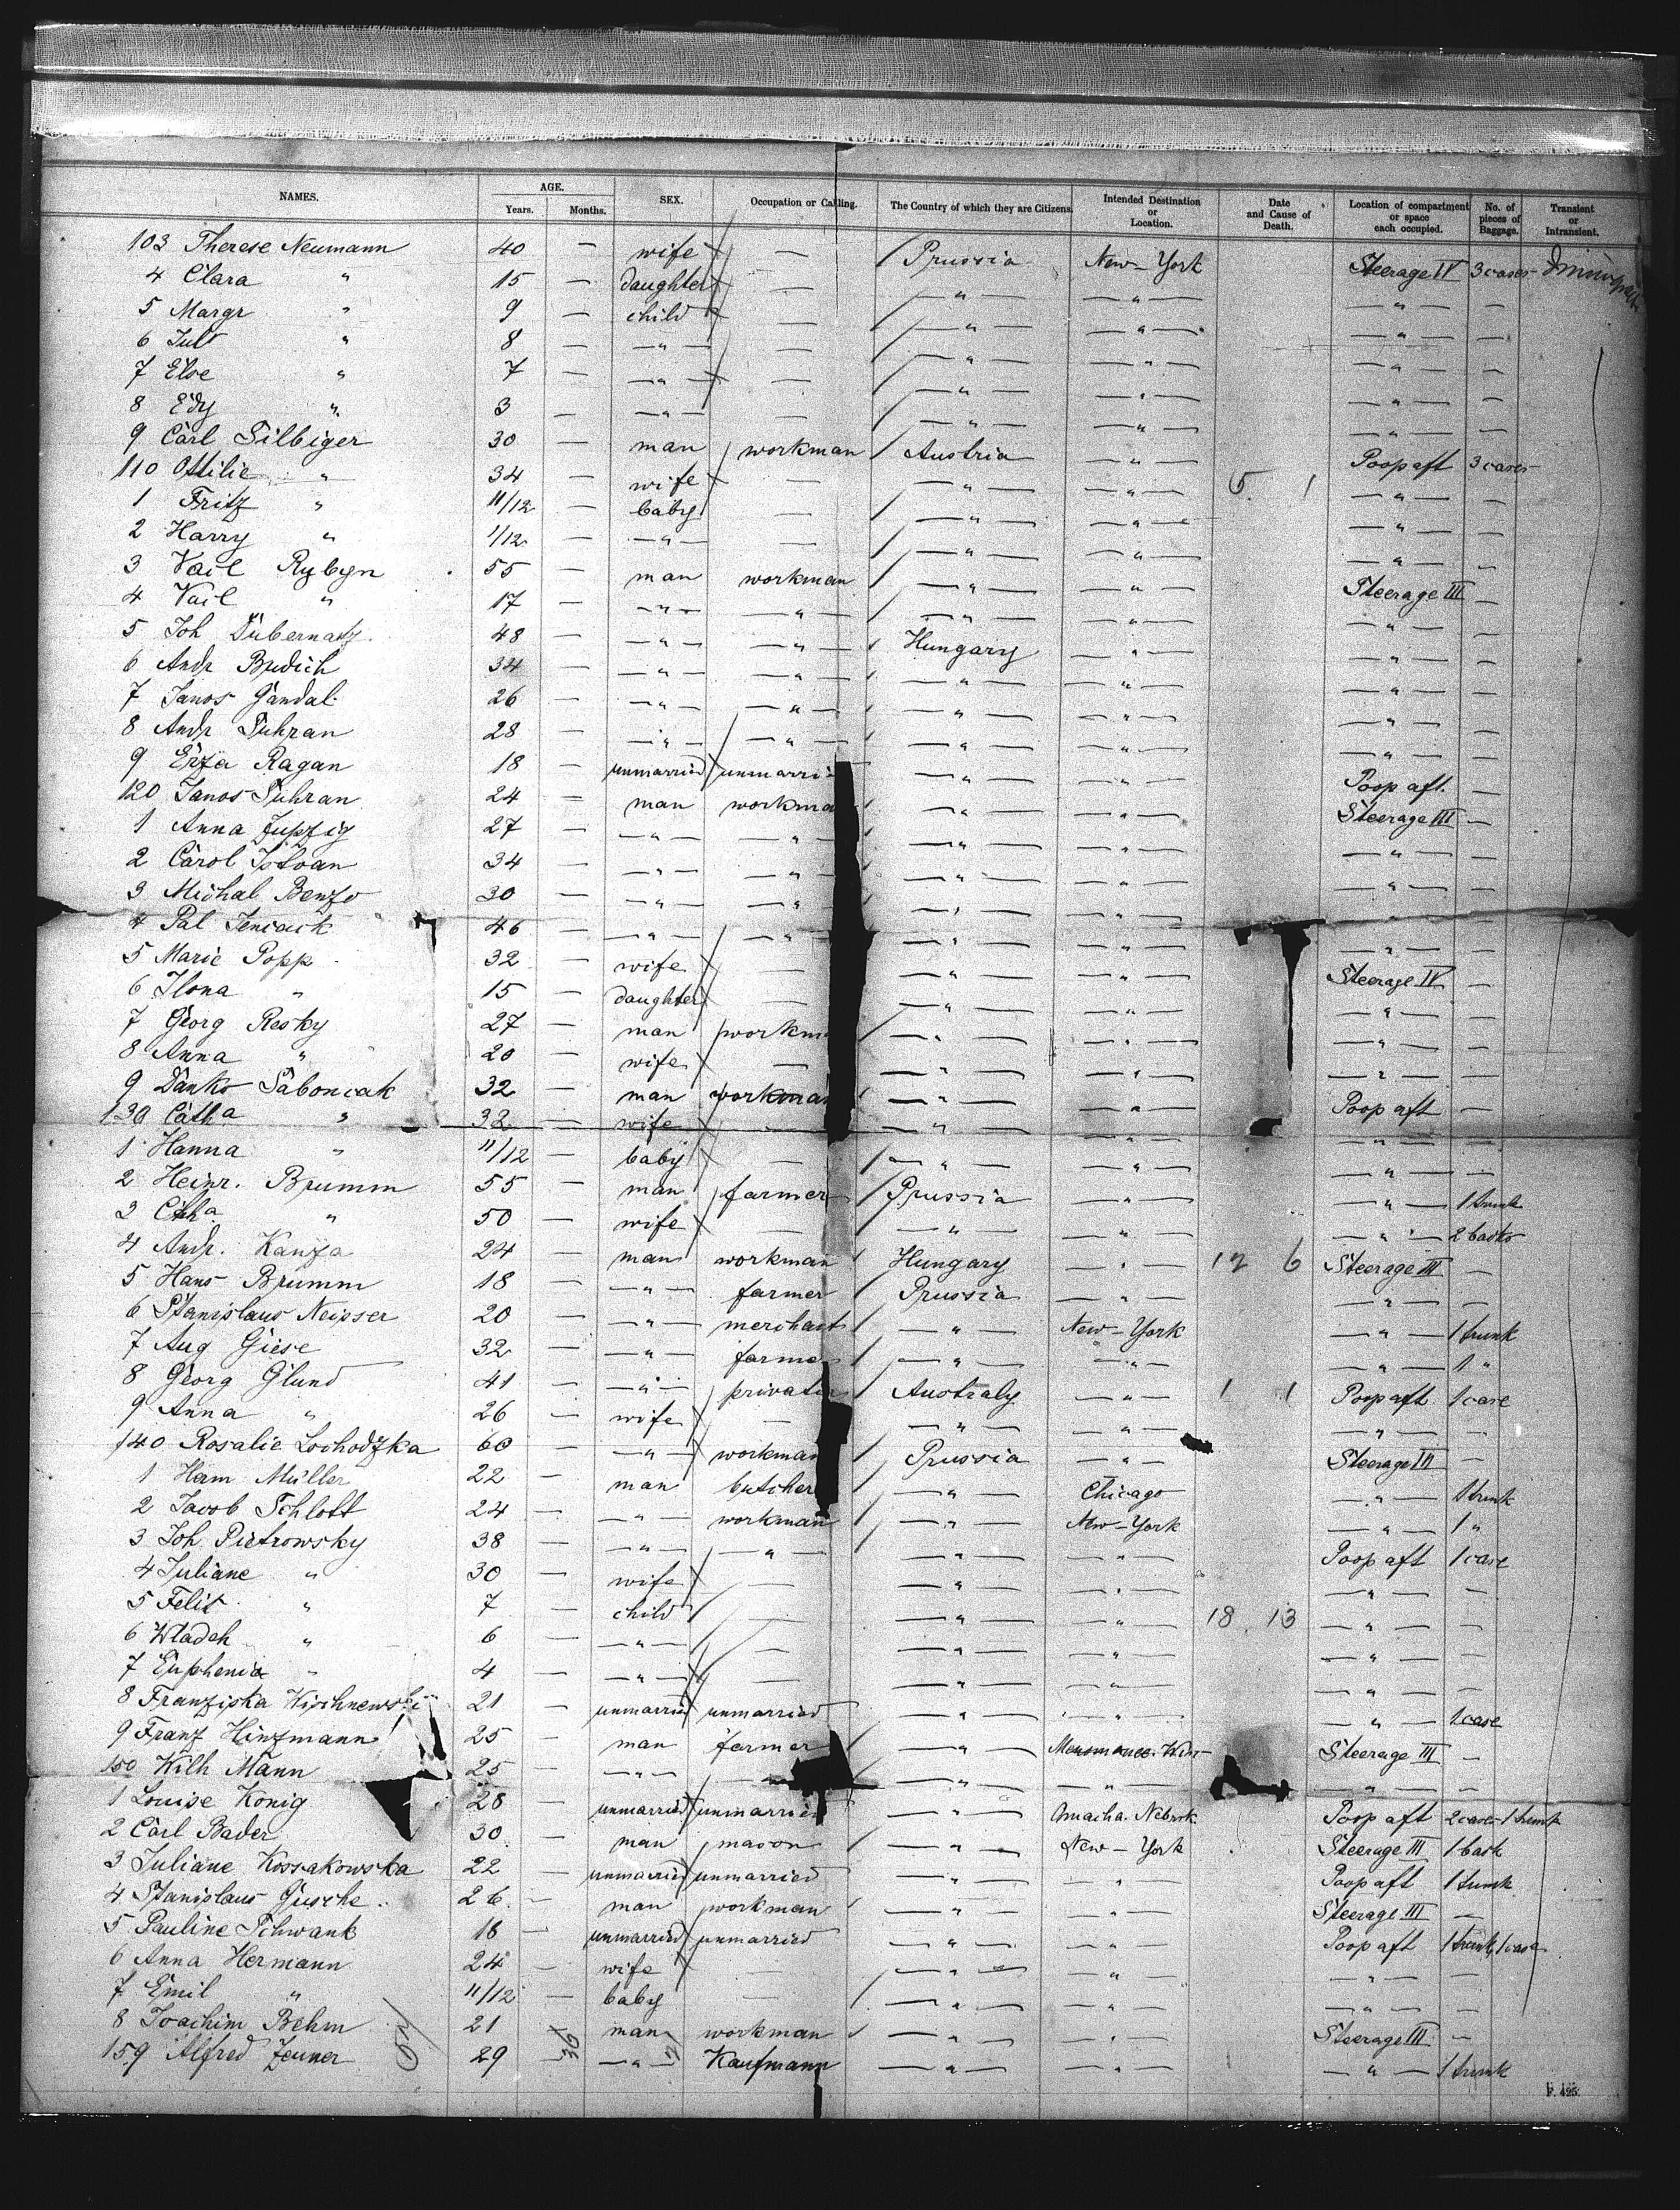 NAMES. AGE. Years. Months. SEX. Occupation or Calling. The Country of which they are Citizens. Intended Destination or Location. Date and Cause of Death. Location of compartment or space each occupied. No. of pieces of Baggage. Transient or Intransient.
103 Therese Neumann 40 — wife — / Prussia New-York Steerage IV 3 cases
4 Clara " 15 — daughter — / —"— —"— —"— —
5 Margr " 9 — child — / —"— —"— —"— —
6 Jult " 8 — —"— — / —"— —"— —"— —
7 Else " 7 — —"— — / —"— —"— —"— —
8 Edy " 3 — —"— — / —"— —"— —"— —
9 Carl Silbiger 30 — man workman / Austria —"— Poop aft 3 cases
110 Ottilie " 34 — wife — / —"— —"— 5. 1 —"— —
1 Fritz " 11/12 — baby — / —"— —"— —"— —
2 Harry " 1/12 — —"— — / —"— —"— —"— —
3 Vail Rybyn 55 — man workman / —"— —"— Steerage III —
4 Vail " 17 — —"— —"— / —"— —"— —"— —
5 Joh Dubernady 48 — —"— —"— / Hungary —"— —"— —
6 Andr Budich 34 — —"— —"— / —"— —"— —"— —
7 Janos Gandal 26 — —"— —"— / —"— —"— —"— —
8 Andr Suhran 28 — —"— —"— / —"— —"— —"— —
9 Erza Ragan 18 — unmarried unmarri —"— —"— Poop aft. —
120 Janos Suhran 24 — man workma / —"— —"— Steerage III —
1 Anna Jupzig 27 — —"— —"— / —"— —"— —"— —
2 Carol Istvan 34 — —"— —"— / —"— —"— —"— —
3 Michal Benzo 30 — —"— —" / —"— —"— —"— —
4 Pal Jenciack 46 — —"— —" / —"— —"— —"— —
5 Marie Popp 32 — wife — / —"— —"— Steerage IV —
6 Ilona " 15 — daughter — / —"— —"— —"— —
7 Georg Resky 27 — man workm / —"— —"— —"— —
8 Anna " 20 — wife — / —"— —"— —"— —
9 Danko Saboncak 32 — man workman / —"— —"— Poop aft —
130 Catha " 32 — wife — / —"— —"— —"— —
1 Hanna " 11/12 — baby — / —"— —"— —"— —
2 Heinr. Brumm 55 — man farmer / Prussia —"— —"— 1 trunk
3 Catha " 50 — wife — / —"— —"— —"— 2 basks
4 Andr. Kanza 24 — man workman / Hungary —"— 12 6 Steerage III —
5 Hans Brumm 18 — —"— farmer / Prussia —"— —"— —
6 Stanislaus Neisser 20 — —"— merchant / —"— New-York —"— 1 trunk
7 Aug Giese 32 — —"— farme / —"— —"— —"— 1 "
8 Georg Glund 41 — —"— privatie / Australy —"— 1 1 Poop aft 1 case
9 Anna " 26 — wife — —"— —"— —"— —
140 Rosalie Lochodzka 60 — —"— workman / Prussia —"— Steerage III —
1 Herm Müller 22 — man butcher / —"— Chicago —"— 1 trunk
2 Jacob Schlott 24 — —"— workman / —"— New-York —"— 1 "
3 Joh Pietrowsky 38 — —"— —"— —"— —"— Poop aft 1 case
4 Juliane " 30 — wife — —"— —"— —"— —
5 Felix " 7 — child — —"— —"— 18. 13 —"— —
6 Wladeh " 6 — —"— — —"— —"— —"— —
7 Euphenia " 4 — —"— — —"— —"— —"— —
8 Franziska Wischnewski 21 — unmarried unmarried —"— —"— —"— 1 case
9 Franz Hinzmann 25 — man farmer / —"— Menomonee. Wis Steerage III —
150 Wilh Mann 25 — —"— — —"— —"— —"— —
1 Louise Konig 28 — unmarried unmarried —"— Omacha. Nebrsk Poop aft 2 case 1 trunk
2 Carl Bader 30 — man mason / —"— New-York Steerage III 1 bask
3 Juliane Kossakowska 22 — unmarried unmarried —"— —"— Poop aft 1 trunk
4 Stanislaus Gusche 26 — man workman / —"— —"— Steerage III —
5 Pauline Schwank 18 — unmarried unmarried —"— —"— Poop aft 1 trunk, 1 case
6 Anna Hermann 24 — wife — / —"— —"— —"— —
7 Emil " 11/12 — baby — / —"— —"— —"— —
8 Joachim Behm 21 — man workman / —"— —"— Steerage III —
159 Alfred Zeuner 29 — —"— Kaufmann —"— —"— —"— 1 trunk